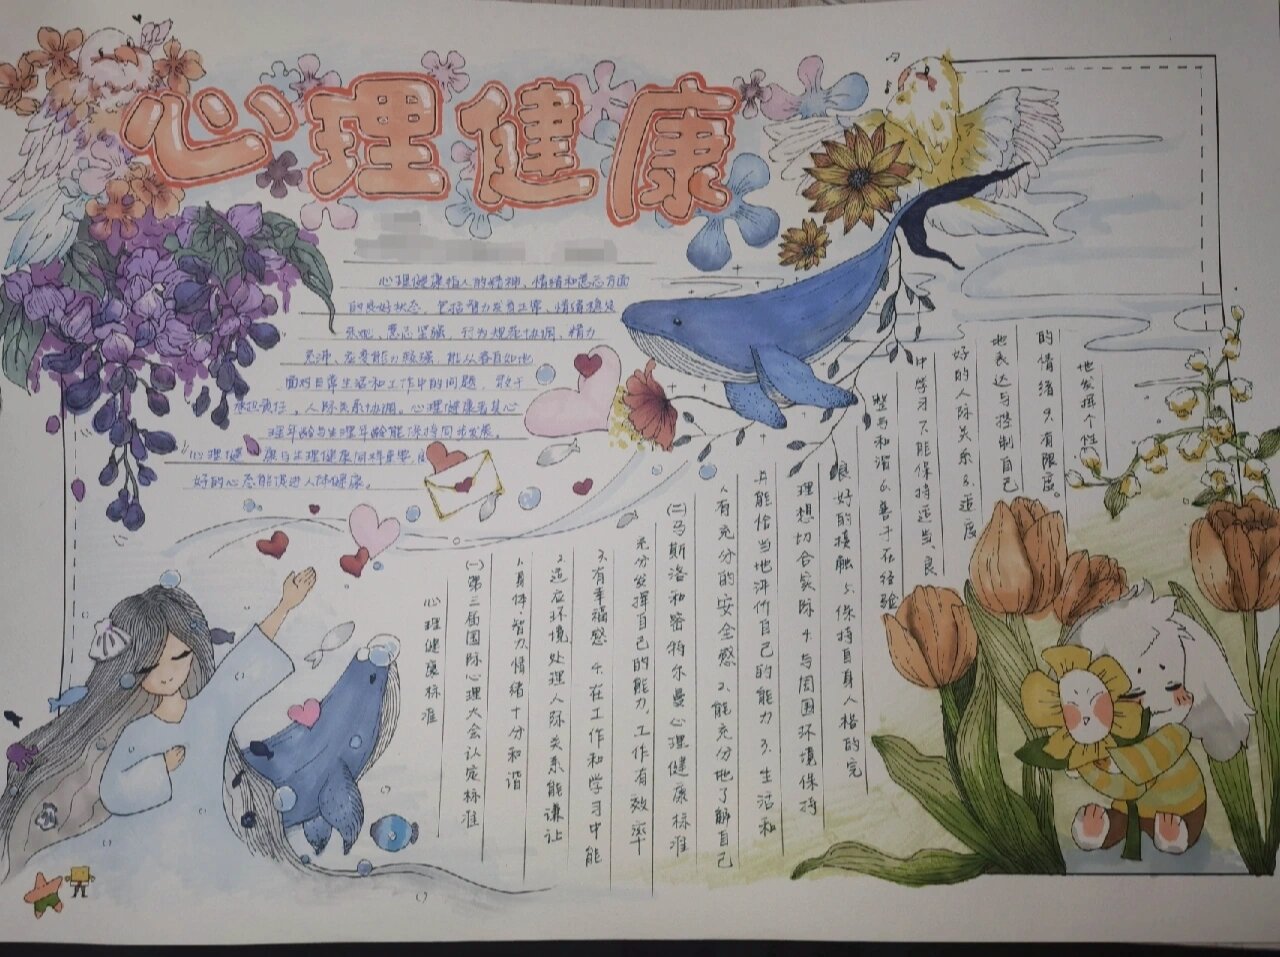 心理健康
心理健康指人的精神、情绪和意志方面
的良好状态，包括智力发育正常、情绪稳定
乐观、意志坚强、行为规范协调、精力
充沛、应变能力较强，能从容自如地
面对日常生活和工作中的问题，敢于
承担责任，人际关系协调。心理健康者其心
理年龄与生理年龄能保持同步发展。
心理健康与生理健康同样重要，良
好的心态能促进人体健康。
心理健康标准
(一)第三届国际心理大会认定标准
1.身体、智力、情绪十分和谐
2.适应环境处理人际关系能谦让
3.有幸福感 4.在工作和学习中能
充分发挥自己的能力，工作有效率
(二)马斯洛和密特尔曼心理健康标准
1.有充分的安全感 2.能充分地了解自己
并能恰当地评价自己的能力 3.生活和
理想切合实际 4.与周围环境保持
良好的接触 5.保持自身人格的完
整与和谐 6.善于在经验
中学习 7.能保持适当、良
好的人际关系 8.适度
地表达与控制自己
的情绪 9.有限度
地发挥个性。